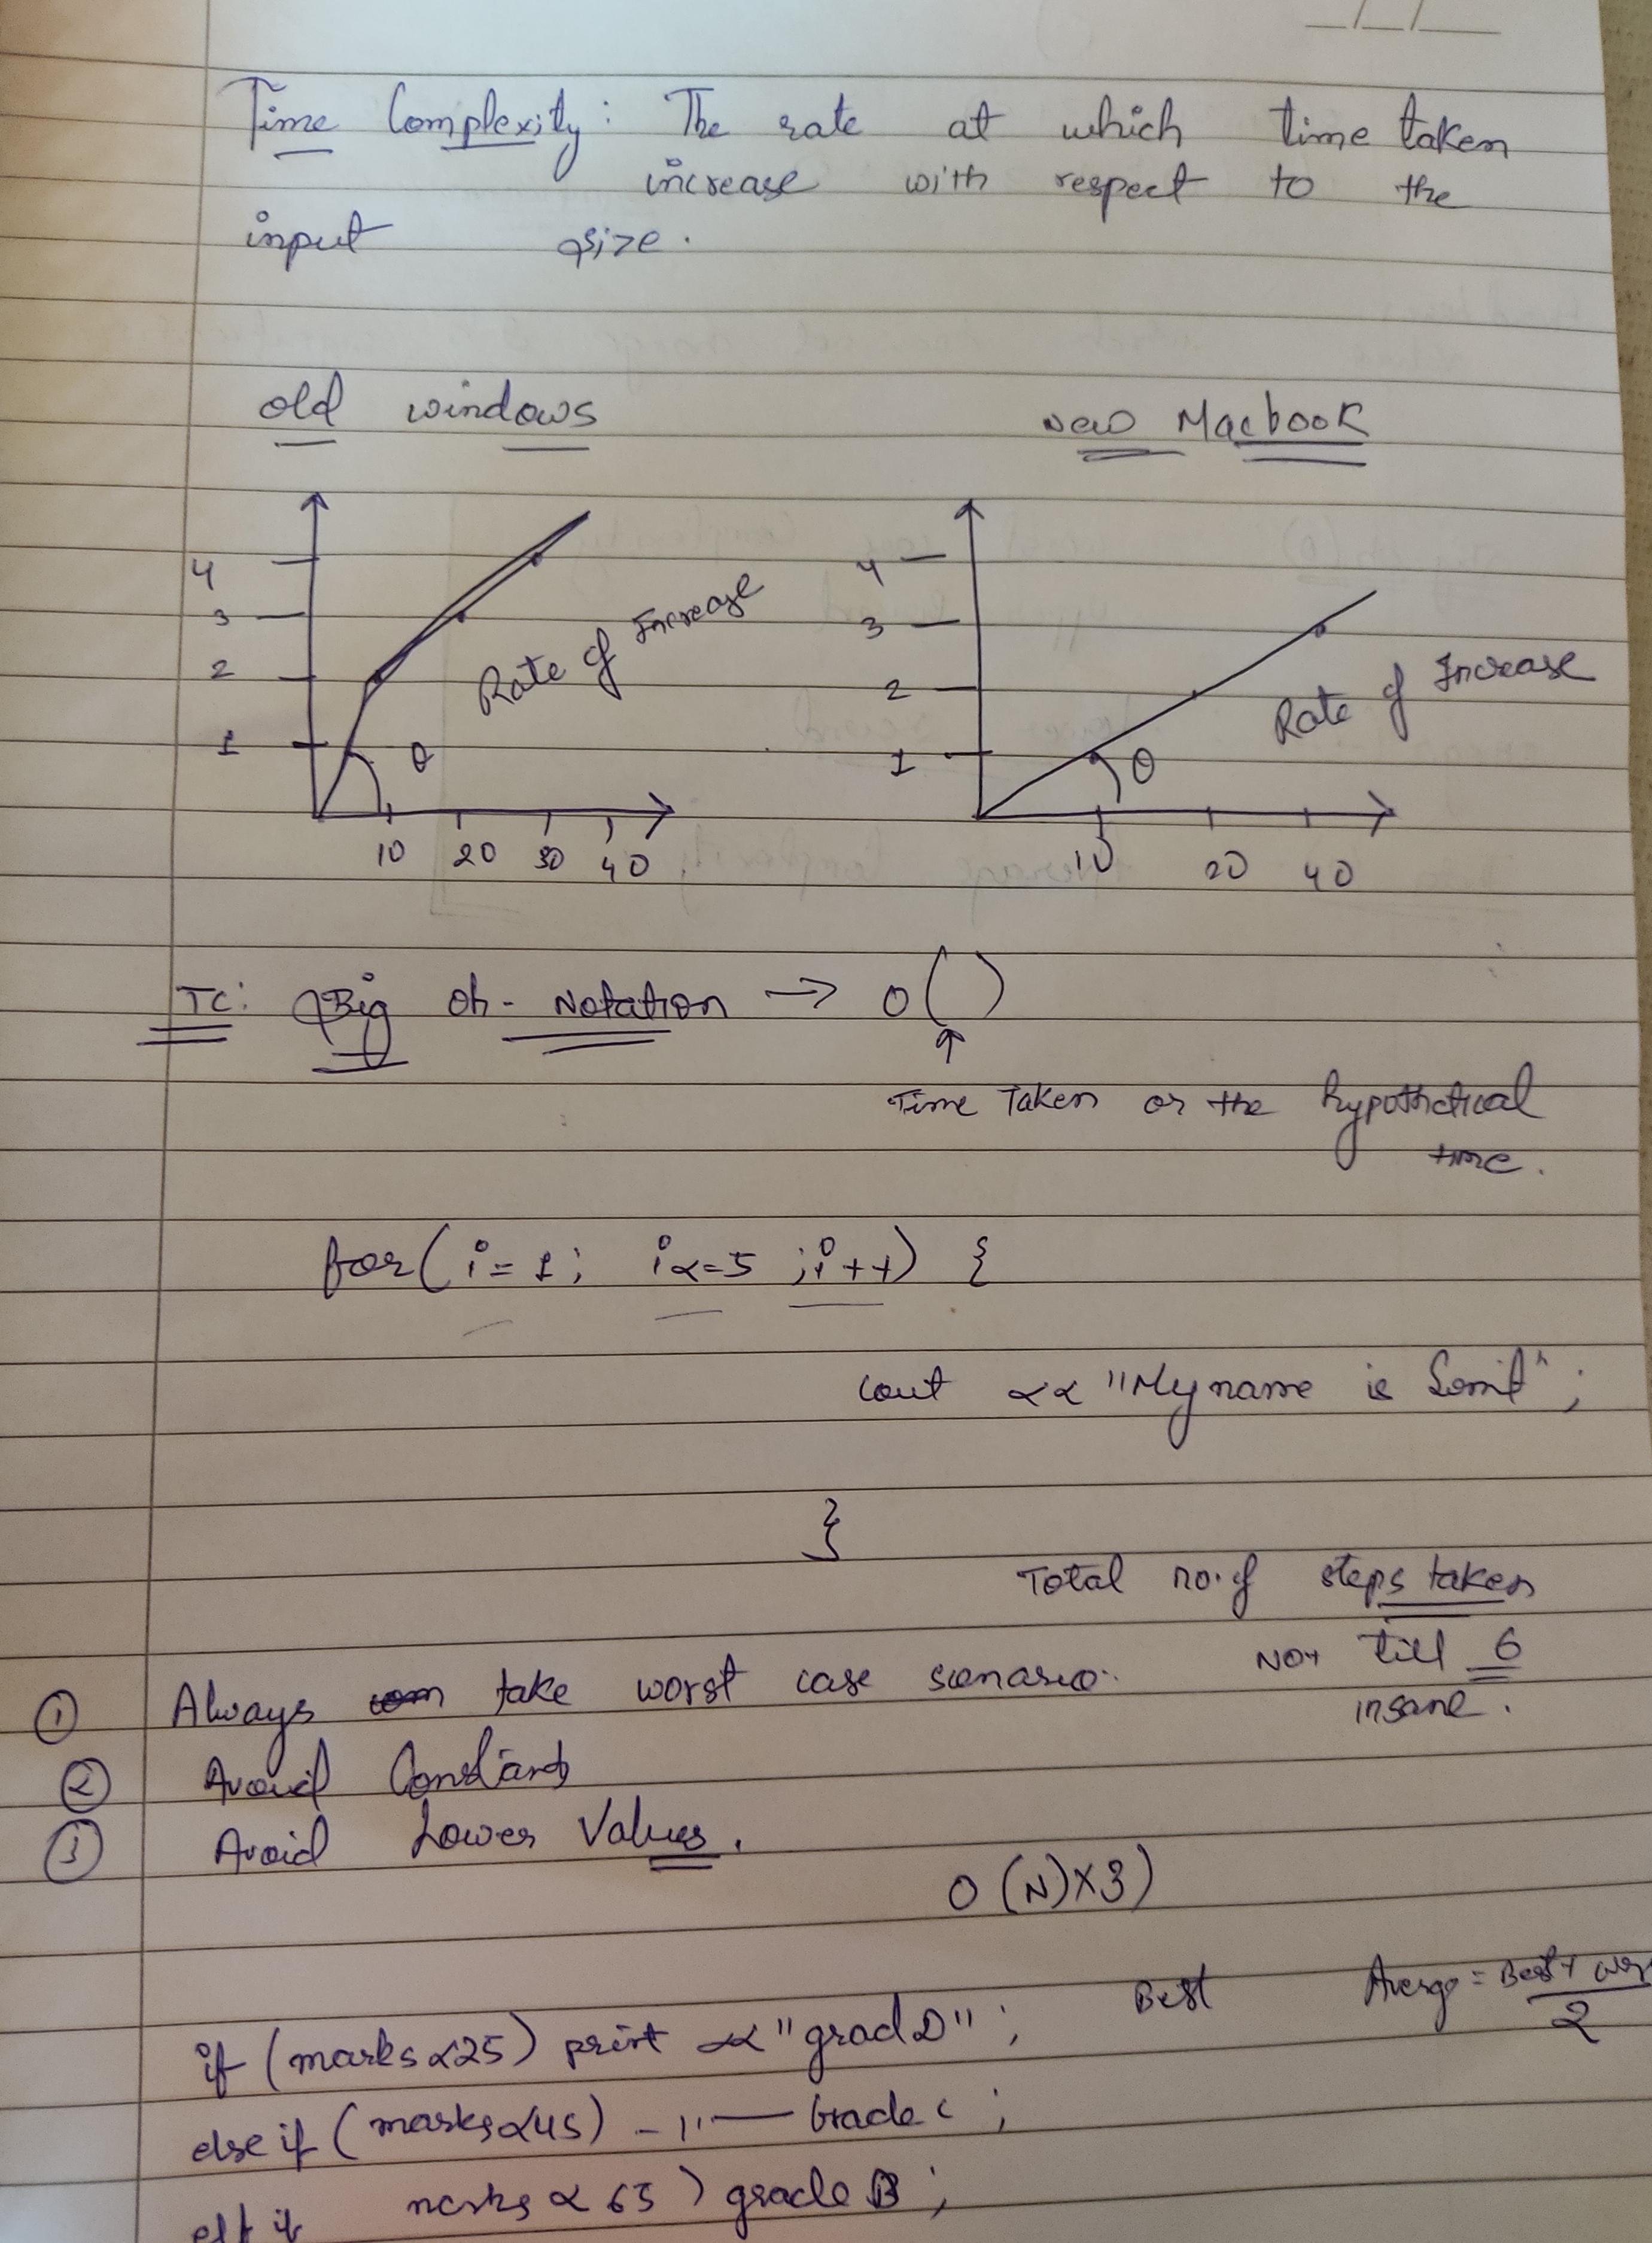 Time Complexity: The rate at which time taken
increase with respect to the
input size.
old windows
New Macbook
4
3
2
1
θ
Rate of Increase
10 20 30 40
4
3
2
1
θ
Rate of Increase
10 20 40
TC: Big Oh - Notation → O( )
↑
Time Taken or the hypothetical
time.
for( i = 1; i <= 5 ; i++) {
cout << "My name is Somit";
}
Total no. of steps taken
Not till 6
insane.
① Always take worst case scenario.
② Avoid Constants
③ Avoid Lower Values.
O (N)×3)
Best Average = Best +
2
if (marks <25) print << "grad D" ;
else if (marks <45) - 11 — Grade C ;
else if marks < 65 ) grade B ;